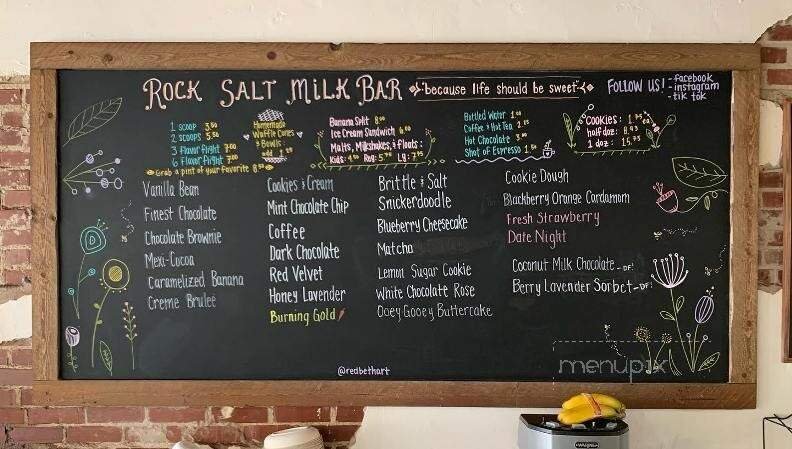 ROCK SALT MILK BAR
"because life should be sweet"
FOLLOW US!
- facebook
- instagram
- tik tok
1 scoop 3.50
2 scoops 5.50
3 flavor flight
6 flavor flight
Grab a pint of your favorite
Homemade
Waffle Cones
& Bowls
add
Banana Split 8.00
Ice Cream Sandwich 6.00
Malts, Milkshakes, & floats:
Kids: Reg: Lg:
Bottled Water
Coffee & Hot Tea
Hot Chocolate
Shot of Espresso
Cookies:
half doz:
1 doz:
Vanilla Bean
Finest Chocolate
Chocolate Brownie
Mexi-Cocoa
Caramelized Banana
Creme Brulee
Cookies & Cream
Mint Chocolate Chip
Coffee
Dark Chocolate
Red Velvet
Honey Lavender
Burning Gold
Brittle & Salt
Snickerdoodle
Blueberry Cheesecake
Matcha
Lemon Sugar Cookie
White Chocolate Rose
Ooey Gooey Buttercake
Cookie Dough
Blackberry Orange Cardamom
Fresh Strawberry
Date Night
Coconut Milk Chocolate - DF!
Berry Lavender Sorbet - DF!
@redbethart
menupix